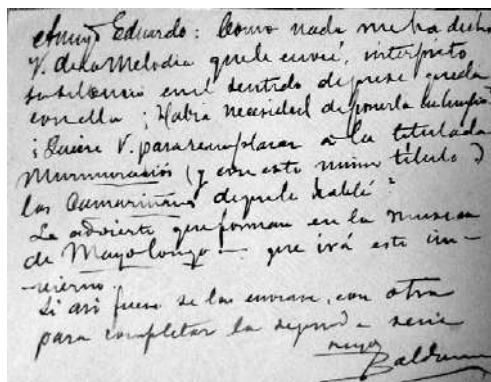 Amigo Eduardo: Como nada me ha dicho
V. de la Melodía que le envié, interpreto
su silencio en el sentido de que se queda
con ella; Habrá necesidad de ponerla en limpio?
¿Quiere V. para reemplazar a la titulada
Murmuración (y con este mismo título)
las Camariñas de que le hablé?
Le advierto que forman en la musica
de Mayo longo — que irá este in-
vierno.
Si así fuese se las enviaré, con otra
para completar la segunda serie
suyo
Baldomir